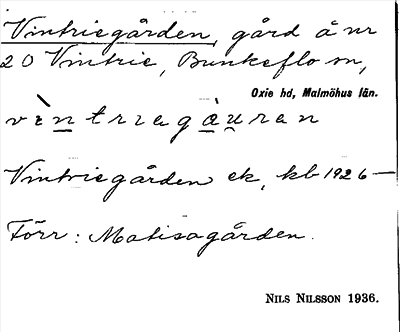 Vintriegården, gård å nr
20 Vintrie, Bunkeflo sn,
Oxie hd, Malmöhus län.
Vintriegården ek, kb 1926—
Förr: Matisagården.
NILS NILSSON 1936.